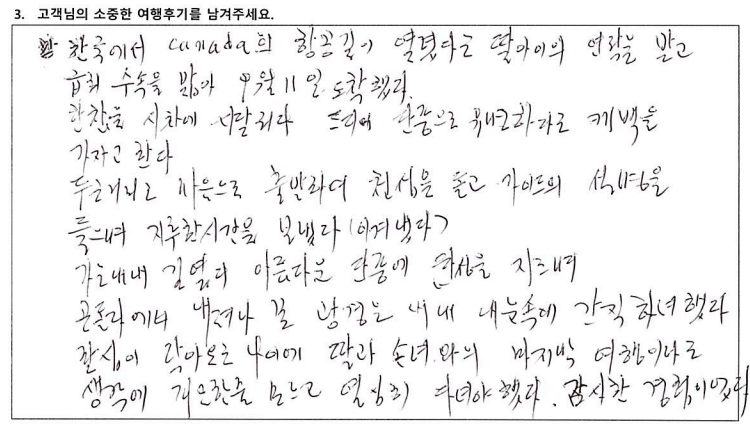 3. 고객님의 소중한 여행후기를 남겨주세요.
한국에서 canada의 항공길이 열렸다고 딸아이의 연락을 받고
급히 수속을 밟아 9월 11일 도착했다.
한참을 시차에 시달리다 드디어 단풍으로 유명하다고 퀘백을
가자고 한다
두근거리는 마음으로 출발하여 천섬을 돌고 가이드의 설명을
들으며 지루한시간을 보냈다 (이겨냈다)
가는내내 길옆의 아름다운 단풍에 환성을 지르며
곤돌라에서 내려다 본 광경은 내내 내눈속에 간직 하려했다
팔십이 닥아오는 나이에 딸과 손녀와의 마지막 여행이라고
생각에 피곤한줄 모르고 열심히 다녀야했다. 감사한 경험이었다